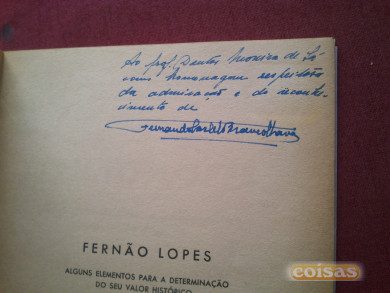 Ao prof. Doutor Moreira de Sá
como homenagem respeitosa
da admiração e do reconhe-
cimento de
FERNÃO LOPES
ALGUNS ELEMENTOS PARA A DETERMINAÇÃO
DO SEU VALOR HISTÓRICO
coisas